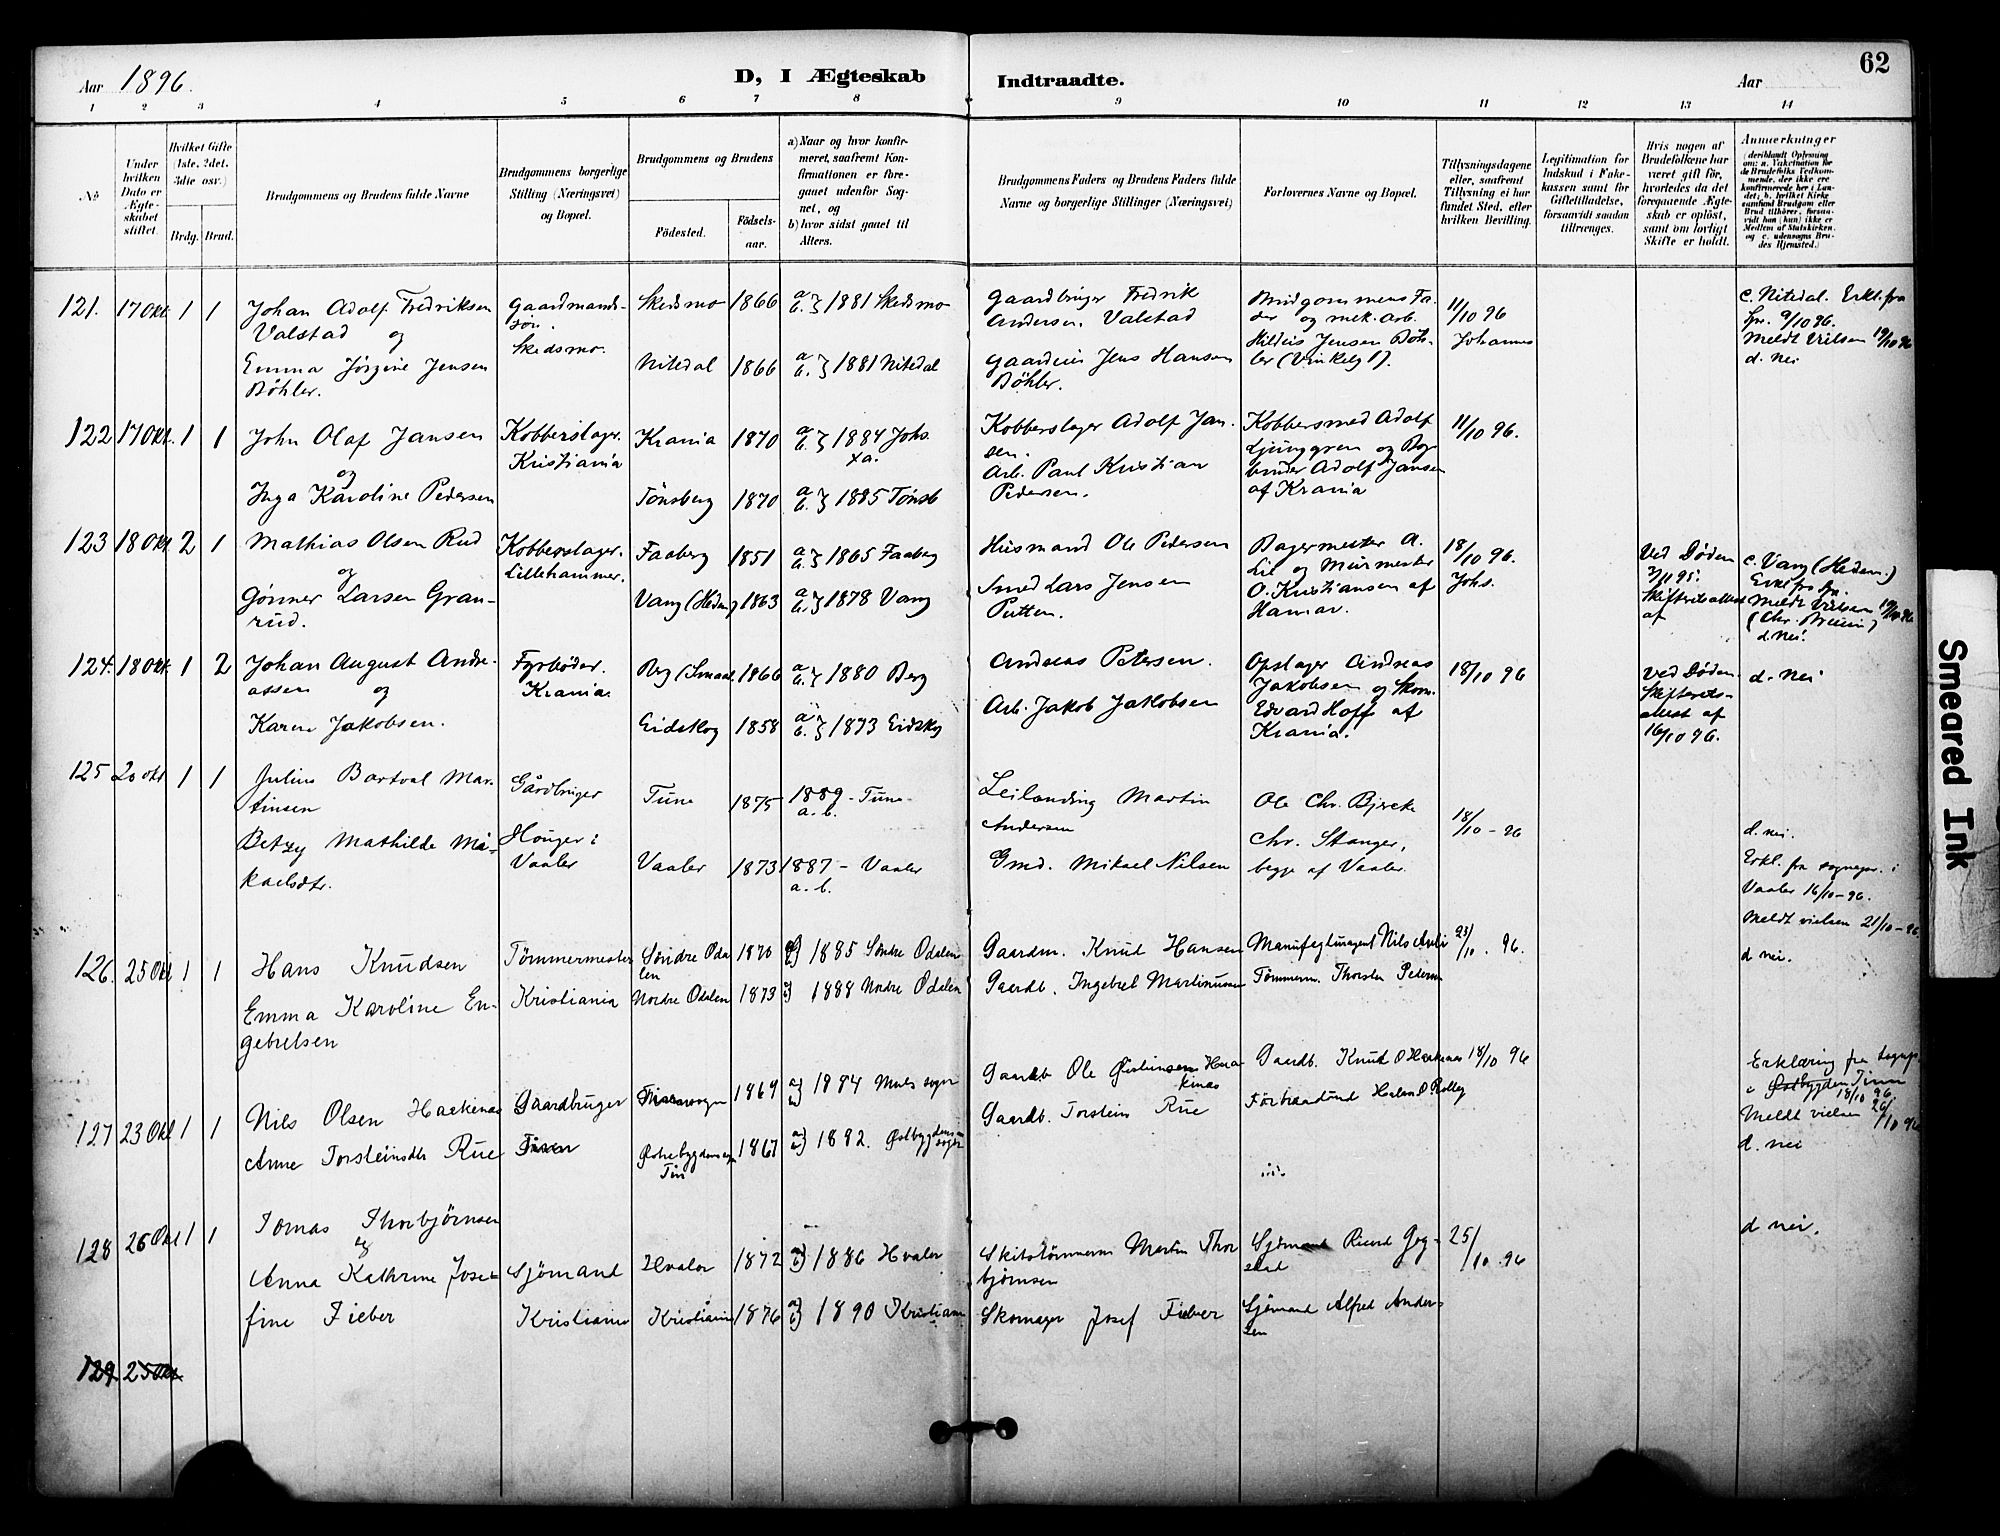 Aar 1896.
D, I Ægteskab Indtraadte.
Aar
62
1 2 3 4 5 6 7 8 9 10 11 12 13 14
No
Under hvilken Dato er Ægteskabet stiftet.
Hvilket Gifte (1ste, 2det, 3die osv.)
Brdg. Brud.
Brudgommens og Brudens fulde Navne
Brudgommens borgerlige Stilling (Næringsvei) og Bopæl.
Brudgommens og Brudens
Födested.
Födsels-aar.
a) Naar og hvor konfirmeret, saafremt Konfirmationen er foregaaet udenfor Sognet, og
b) hvor sidst gaaet til Alters.
Brudgommens Faders og Brudens Faders fulde Navne og borgerlige Stillinger (Næringsvei)
Forlovernes Navne og Bopæl.
Tillysningsdagene eller, saafremt Tillysning ei har fundet Sted, efter hvilken Bevilling.
Legitimation for Indskud i Enkekassen samt for Giftetilladelse, forsaavidt saadan tiltrænges.
Hvis nogen af Brudefolkene har været gift för, hvorledes da det foregaaende Ægteskab er oplöst, samt om lovligt Skifte er holdt.
Anmærkninger
(deriblandt Oplysning om: a. Vaksination för de Brudefolks Vedkommende, der ikke ere konfirmerede her i Landet; b. hvilket Kirkesamfund Brudgom eller Brud tilhörer, forsaavidt han (hun) ikke er Medlem af Statskirken, og c. udensogns Brudes Hjemsted.)
121. 17 Okt. 1 1
Johan Adolf Fredriksen
Valstad og
Emma Jörgine Jensen
Böhler.
Gaardmands-
sön.
Skedsmo.
Skedsmo 1866 a. b. } 1881 Skedsmo
Nitedal 1866 a. b. } 1881 Nitedal
Gaardbruger Fredrik
Andersen Valstad
Gaardeier Jens Hansen
Böhler.
Brudgommens Fa-
der og mek. Arb.
Jensen Böh-
ler (Vinkelg 1).
11/10 96
Johannes
c. Nitedal. Erkl. fra
Spr. 9/10 96.
Meldt Vielsen 19/10 96
d. Nei
122 17 Okt. 1 1
John Olaf Jansen
og
Inga Karoline Pedersen
Kobberslager.
Kristiania
Krania 1870 a. b. } 1884 Johs.
Xa.
Tönsberg 1870 a. b. } 1885 Tönsb
Kobberslager Adolf Jan-
sen.
Arb. Paul Kristian
Pedersen.
Kobbersmed Adolf
Ljunggren og Bog-
binder Adolf Jansen
af Krania
11/10 96.
123 18 Okt. 2 1
Mathias Olsen Rud
og
Gönner Larsen Gran-
rud.
Kobberslager.
Lillehammer.
Faaberg 1851 a. b. } 1865 Faaberg
Vang (Hedm) 1863 a. b. } 1878 Vang
Husmand Ole Pedersen
Smed Lars Jensen
Putten.
Bagermester A.
Lie og Muirmester
O. Kristiansen af
Hamar.
18/10 96.
Johs.
Ved Döden
7/11 95.
Skifteretsattest
af
c. Vang (Hedem.)
Erkl fra Spr.
Meldt Vielsen 19/10 96
d. Nei.
124. 18 Okt. 1 2
Johan August Andre-
assen og
Karen Jakobsen.
Fyrböder.
Krania.
Berg (Smaal. 1866 a. b. } 1880 Berg
Eidskog 1858 a. b. } 1873 Eidskg
Andreas Petersen.
Arb. Jakob Jakobsen
Opslager Andreas
Jakobsen og Skom.
Edvard Hoff af
Krania.
18/10 96
Ved Döden.
Skifterets-
attest af
16/10 96.
d. Nei
125 20 okt 1 1
Julius Bartval Mar-
tinsen
Betzy Mathilde Mi-
kaelsdtr.
Gårdbruger
Houger i
Vaaler
Tune 1875 1889 - Tune
a. b.
Vaaler 1873 1887 - Vaaler
a. b.
Leilending Martin
Andersen
Gmd. Mikael Nilsen
Ole Chr. Bjerke
Chr. Stanger,
begge af Vaaler.
18/10 - 96
d. nei.
Erkl. fra sognepr. i
Vaaler 16/10 - 96.
Meldt vielsen 21/10 - 96.
126. 25 Okt 1 1
Hans Knudsen
Emma Karoline En-
gebretsen
Tömmermester
Kristiania
Söndre Oda-
len 1870 1885 Söndre Odalen
Nordre Odalen 1873 1888 Nordre Odalen
Gaardm. Knud Hansen
Gaardb. Ingebret Martinussen
Manufagturagent Nils
Tömmerm. Thorsten Pedersen
23/10. 96.
d nei.
127 23 Okt 1 1
Nils Olsen Haakenas
Anne Torsteinsdtr Rue
Gaardbruger
Tinn
1869 a) b) 1884 Mæls sogn
Östrebygdens sogn
Tin 1867 a) b) 1882. Östbygdens
sogn
Gaardb Ole Haa-
kenas
Gaardb. Torstein Rue
Gaardb. Knud O Haakenas
18/10 96
Erklæring fra Sognepr
i Östbygden Tinn
18/10 96.
Meldt vielsen 26/10 96
d. nei
128 26 Okt 1 1
Tomas Thorbjörnsen
og
Anna Kathrine Jose-
fine Fieber
Sjömand
Kristiania
Hvaler 1872 a) b) 1886 Hvaler
Kristiania 1876 a) b) 1890 Kristiania
Skibstömmerm Martin Thor
björnsen
Skomager Josef Fieber
Sjömand
Sjömand Alfred Ander-
sen
25/10. 96
d nei.
129 25 Okt
Smeared Ink